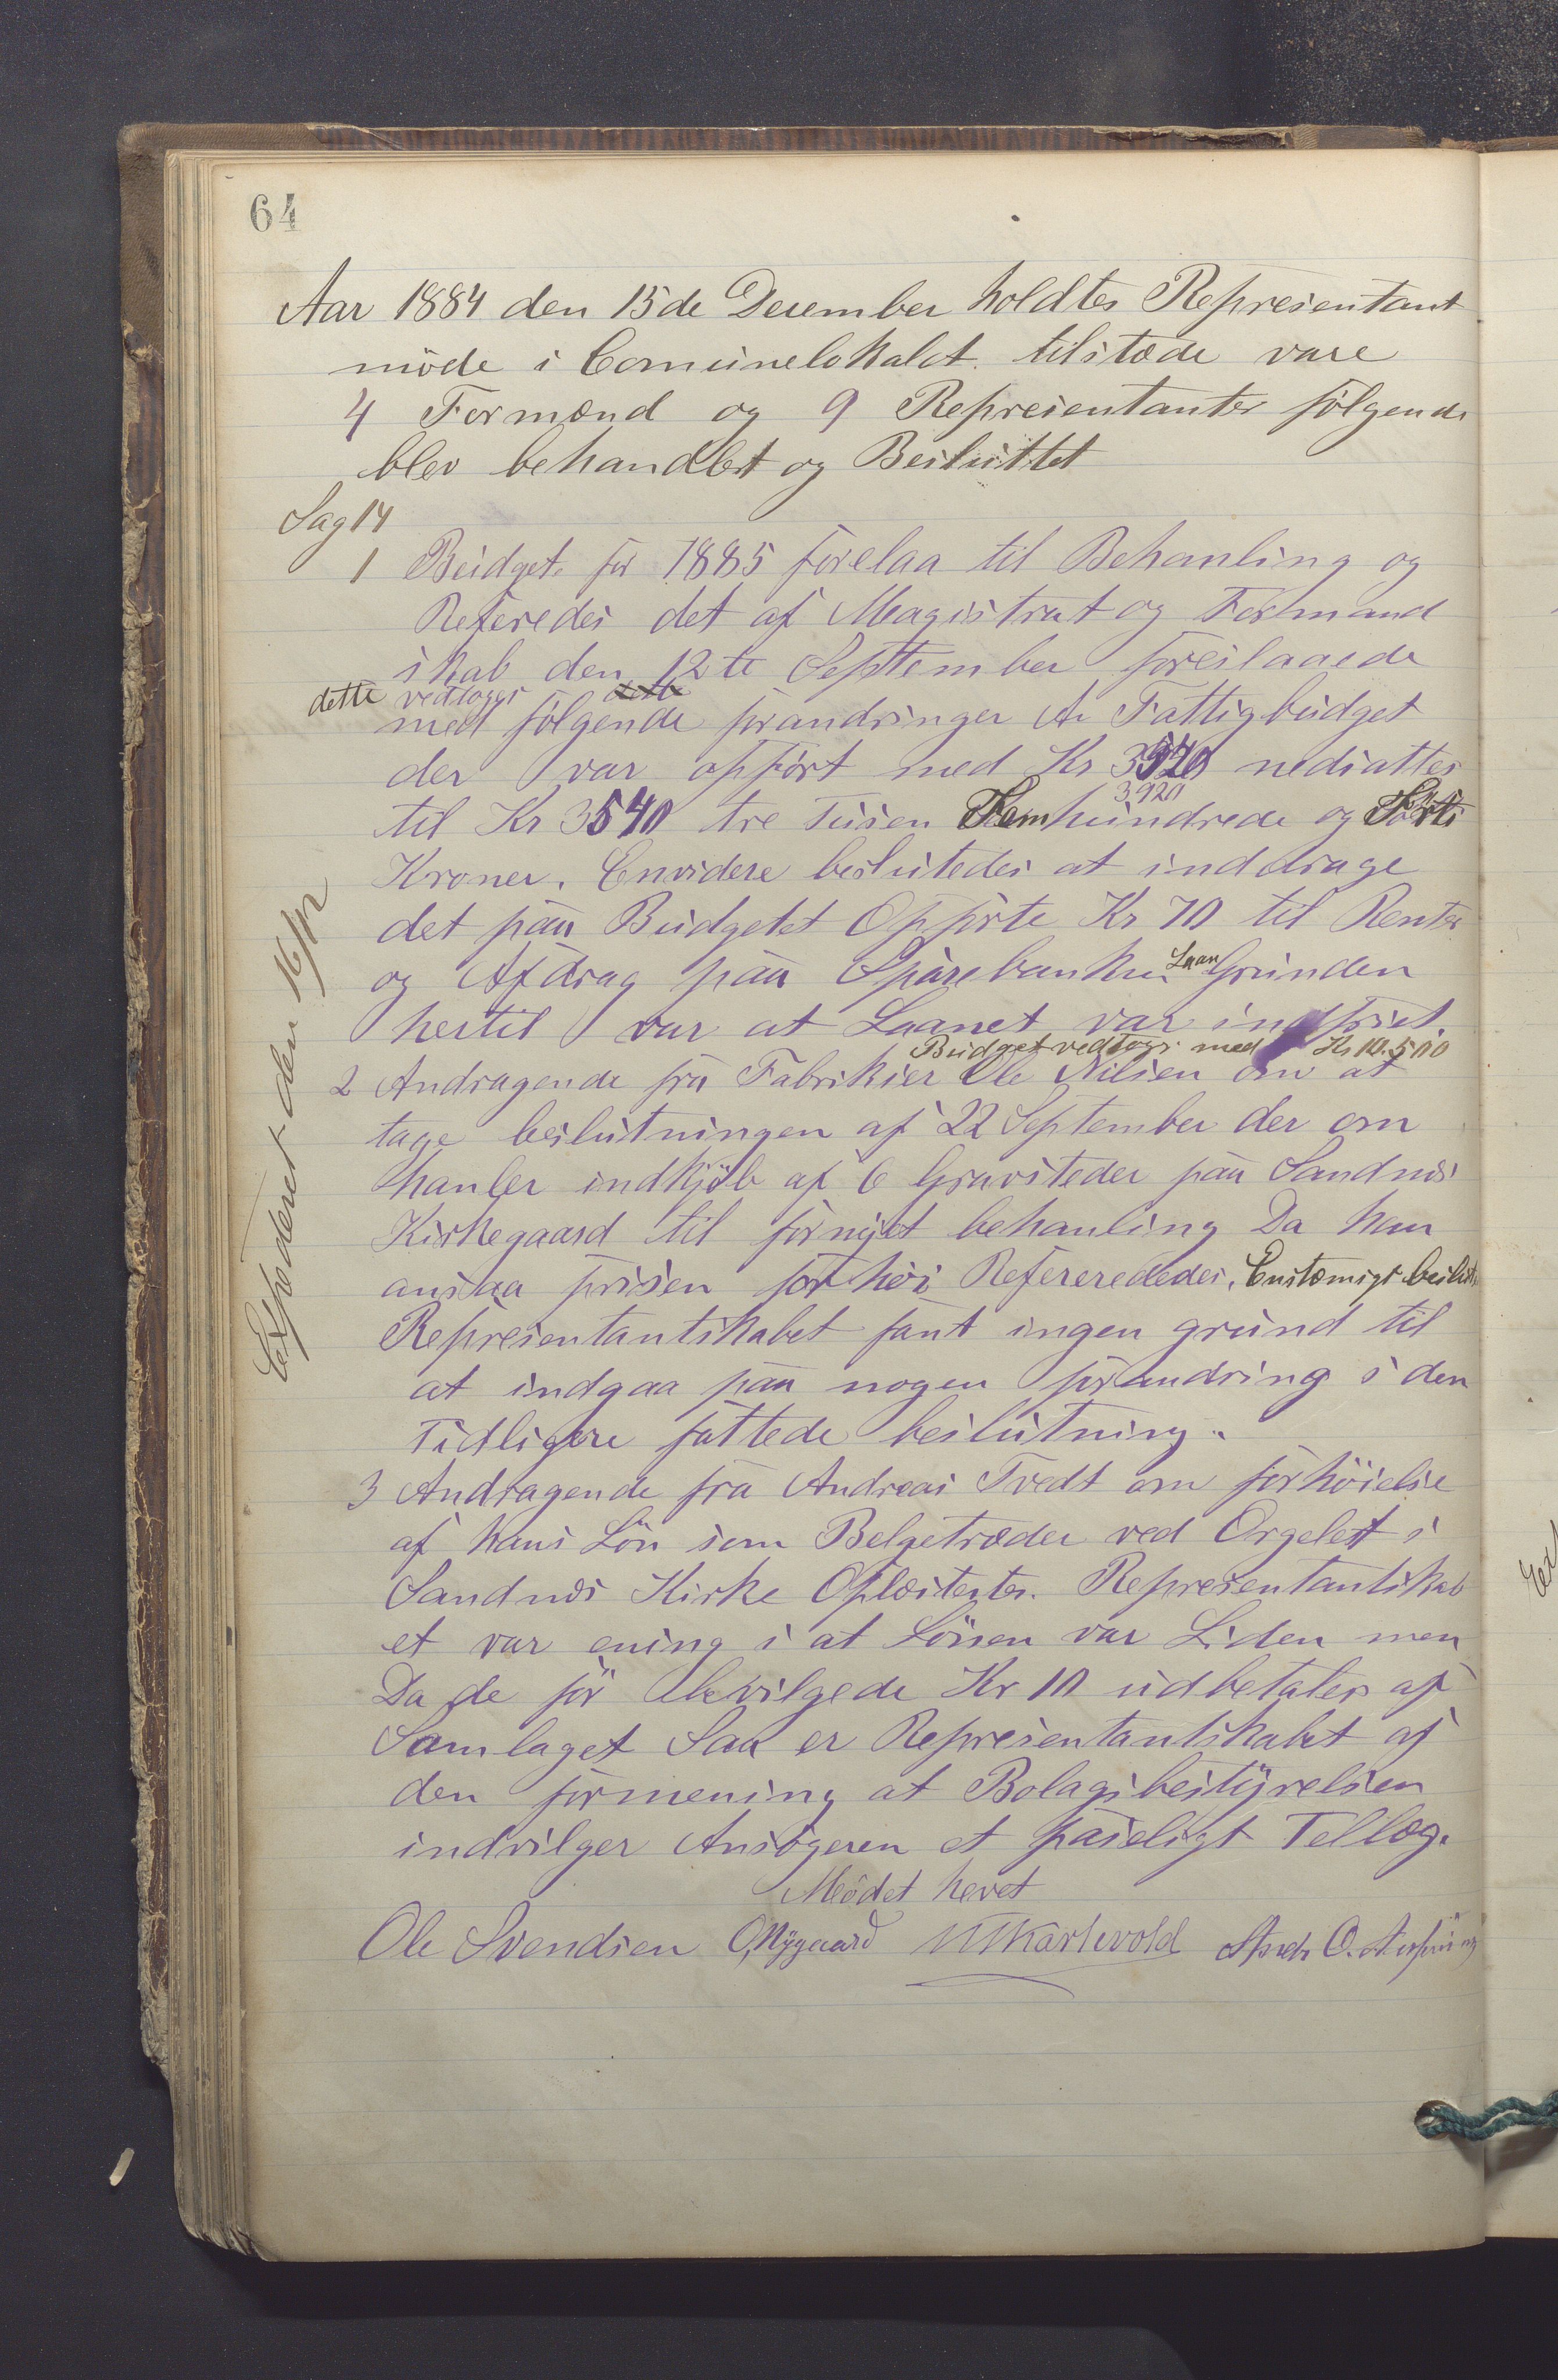 64
Aar 1884 den 15de December holdtes Representant
möde i Comunelokalet. tilstæde vare
4 Formænd og 9 Representanter fölgende
blev behandlet og Besluttet
Sag 14
1 Budget for 1885 forelaa til Behanling og
Referedes det af Magistrat og Formand
skab den 12te September foreslaaede
dette vedtoges dette
med fölgende forandringer At Fattigbudget
der var opfört med Kr 3920 nedsattes
3920
til Kr 3540 tre Tusen Femhundrede og Förti
Kroner. Envidere beslutedes at inddrage
det paa Budgetet Opförte Kr 70 til Rente
og Afdrag paa Sparebanken Laan Grunden
hertil var at Laanet var indfriet.
Budget vedtoges med Kr 10.500
2 Andragende fra Fabrikier Ole Nilsen om at
tage beslutningen af 22 September der om
hanler indkjöb af 6 Gravsteder paa Sandnæs
Kirkegaard til fornyet behanling Da han
ansaa prisen for höi Refereredes. Enstæmigt beslut
Representantskabet fant ingen grund til
at indgaa paa nogen forandring i den
Tidligere fattede beslutning.
3 Andragende fra Andreas Tvedt om forhöielse
af hans Lön som Belgetræder ved Orgelet i
Sandnæs Kirke Oplæstes. Representantskab
et var ening i at Lönen var Liden men
Da de för bevilgede Kr 10 udbetales af
Samlaget Saa er Representantskabet af
den formening at Bolagsbestyrelsen
indvilger Ansögeren et paseligt Tellæg.
Mödet hevet
Ole Svendsen O, Nygaard Karlevold O.
Expederet den 16/12
Ex